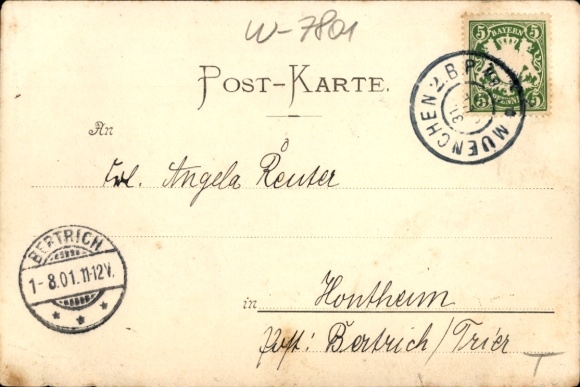 W-7801
5 BAYERN 5
5 PFENNIG 5
MUENCHEN 2. B.P.
POST-KARTE.
An
Frl. Angela Reuter
BERTRICH
1-8.01.11-12V.
in Hontheim
Post: Bertrich/Trier
T